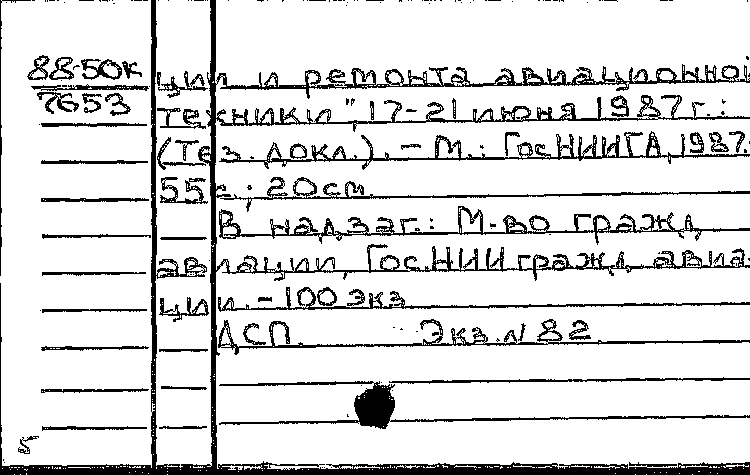 88-50к
7653
ции и ремонта авиационной
техники", 17-21 июня 1987 г.:
(Тез. докл.). - М.: ГосНИИГА, 1987.
55с.; 20см.
В надзаг.: М-во гражд.
авиации, Гос.НИИ гражд. авиа-
ции. - 100 экз.
ДСП. Экз. N 82.
5